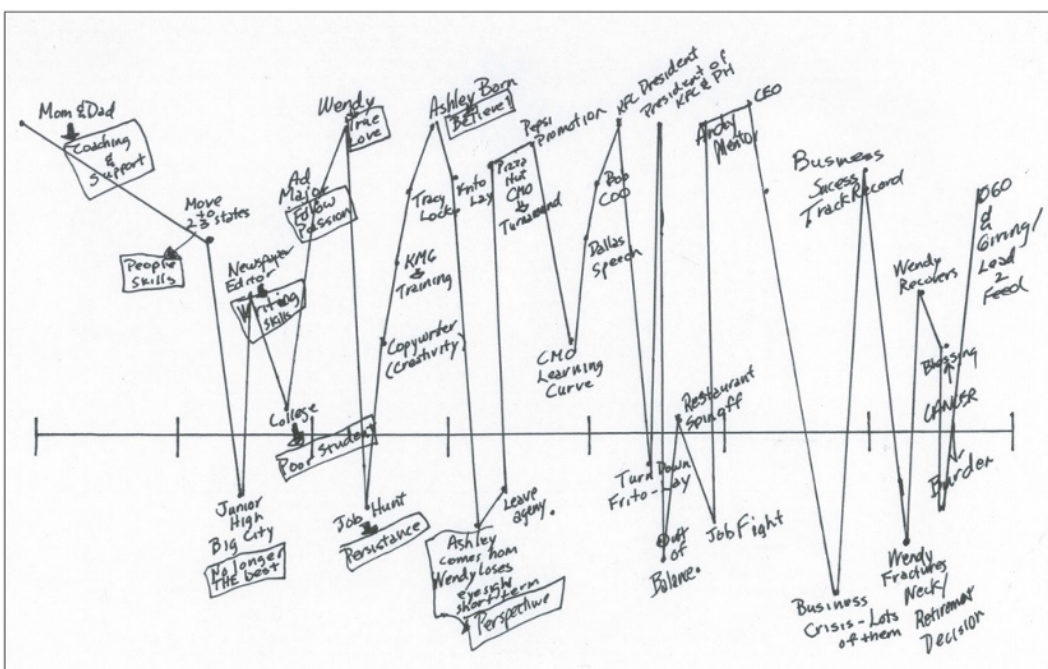 Mom & Dad
Coaching
&
Support
Move
to
23 states
People
Skills
Newspaper
Editor
Writing
Skills
Junior
High
Big City
No longer
THE best
College
Poor Student
Ad
Major
Follow
Passion
Wendy
True
Love
Job Hunt
Persistance
Copywriter
(Creativity)
KMG
Training
Tracy
Locke
Ashley Born
Believe!
Frito
Lay
Ashley
comes hom
Wendy loses
eyesight
short/term
Perspective
Leave
ageny.
Pizza
Hut
CMO
Turnaround
Pepsi
Promotion
CMO
Learning
Curve
Dallas
Speech
Bop
COO
KFC President
President of
KFC & PH
Turn Down
Frito-Lay
Out
of
Balance.
Restaurant
Spinoff
Job Fight
Andy
Mentor
CEO
Business
Crisis - Lots
of them
Business
Sucess
Track Record
Wendy
Fractures
Neck/
Retirement
Decision
Wendy
Recovers
Blessing
CANCER
Burden
OGO
&
Giving/
Lead
2
Feed